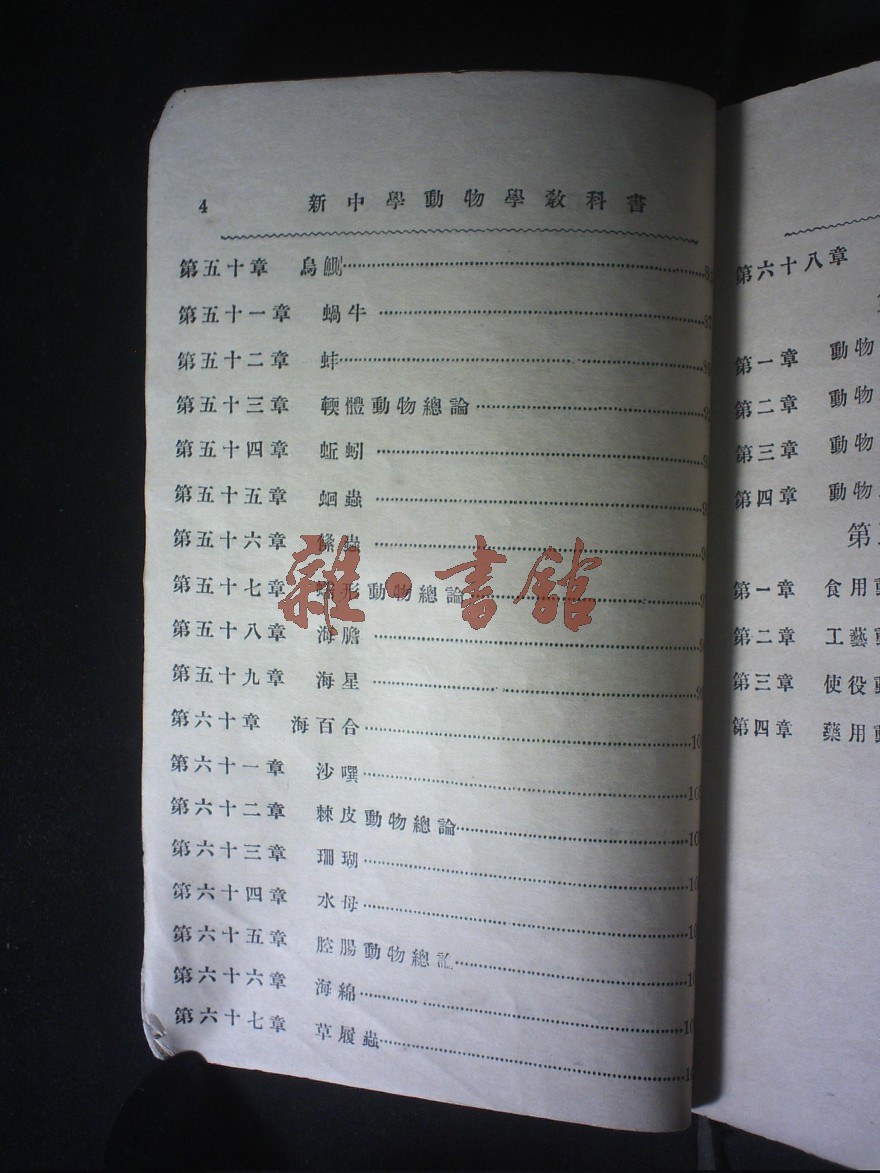 4 新中學動物學教科書
第五十章 烏鰂
第五十一章 蝸牛
第五十二章 蚌
第五十三章 輭體動物總論
第五十四章 蚯蚓
第五十五章 蛔蟲
第五十六章 絛蟲
第五十七章 蠕形動物總論
第五十八章 海膽
第五十九章 海星
第六十章 海百合
第六十一章 沙噀
第六十二章 棘皮動物總論
第六十三章 珊瑚
第六十四章 水母
第六十五章 腔腸動物總論
第六十六章 海綿
第六十七章 草履蟲
雜·書館
第六十八章
第一章 動物
第二章 動物
第三章 動物
第四章 動物
第
第一章 食用動
第二章 工藝動
第三章 使役動
第四章 藥用動